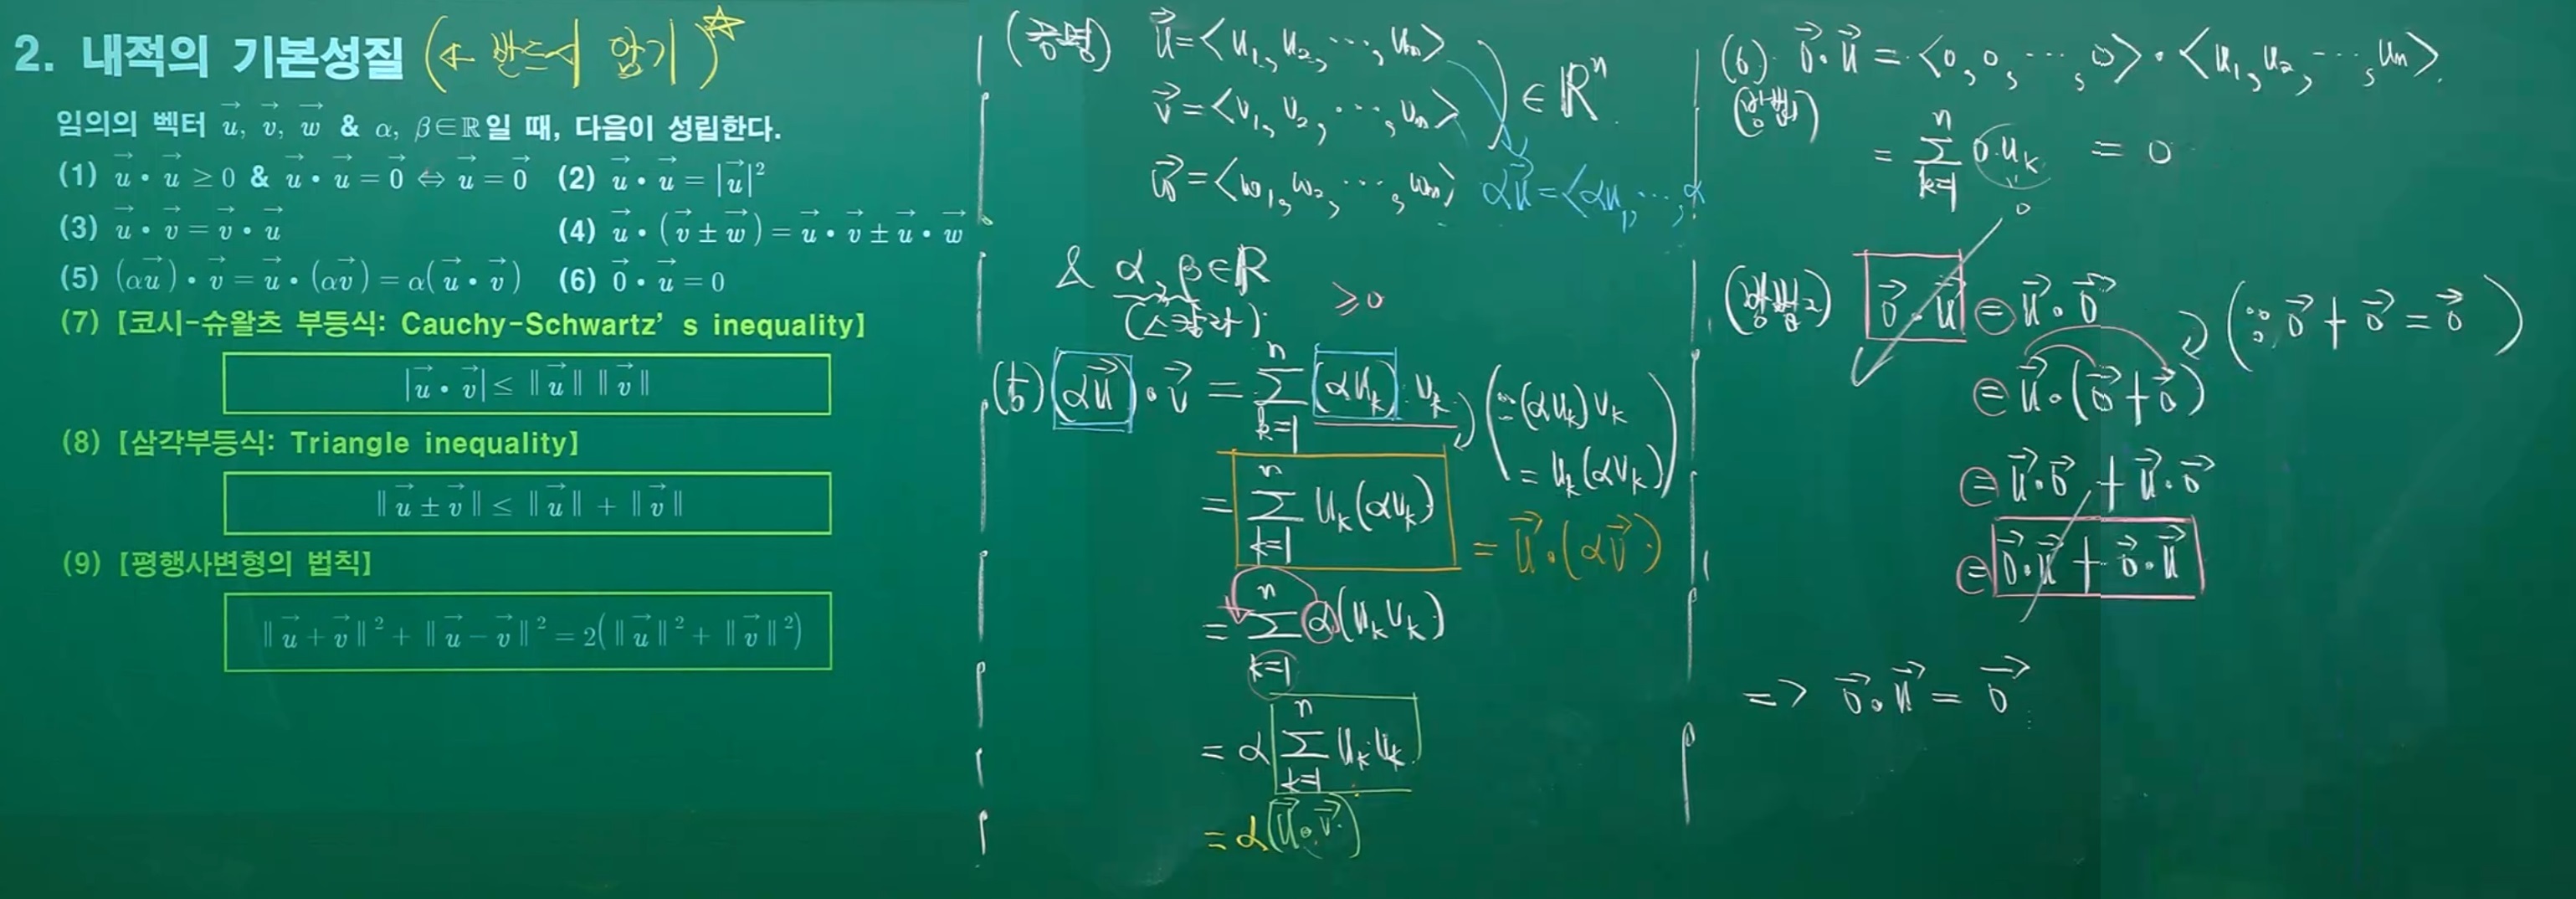 2. 내적의 기본성질 (← 반드시 암기)☆
임의의 벡터 \vec{u}, \vec{v}, \vec{w} & α, β∈ℝ일 때, 다음이 성립한다.
(1) \vec{u}•\vec{u} ≥ 0 & \vec{u}•\vec{u} = \vec{0} ⇔ \vec{u} = \vec{0} (2) \vec{u}•\vec{u} = |\vec{u}|²
(3) \vec{u}•\vec{v} = \vec{v}•\vec{u} (4) \vec{u}•(\vec{v} ± \vec{w}) = \vec{u}•\vec{v} ± \vec{u}•\vec{w}
(5) (α\vec{u})•\vec{v} = \vec{u}•(α\vec{v}) = α(\vec{u}•\vec{v}) (6) \vec{0}•\vec{u} = 0
(7)【코시-슈왈츠 부등식: Cauchy-Schwartz’ s inequality】
|\vec{u}•\vec{v}| ≤ ‖\vec{u}‖ ‖\vec{v}‖
(8)【삼각부등식: Triangle inequality】
‖\vec{u} ± \vec{v}‖ ≤ ‖\vec{u}‖ + ‖\vec{v}‖
(9)【평행사변형의 법칙】
‖\vec{u} + \vec{v}‖² + ‖\vec{u} − \vec{v}‖² = 2(‖\vec{u}‖² + ‖\vec{v}‖²)
(증명) \vec{u} = <u₁, u₂, ⋯, uₙ>
\vec{v} = <v₁, v₂, ⋯, vₙ> ∈ ℝⁿ
\vec{w} = <w₁, w₂, ⋯, wₙ> α\vec{u} = <αu₁, ⋯, α
& α, β∈ℝ
(스칼라) ≥0
(5) (α\vec{u})•\vec{v} = \sum_{k=1}^{n} (αu_k)·v_k (∵ (αu_k)v_k
= u_k(αv_k))
= \sum_{k=1}^{n} u_k(αv_k) = \vec{u}•(α\vec{v})
= \sum_{k=1}^{n} α(u_k v_k)
= α \sum_{k=1}^{n} u_k v_k
= α(\vec{u}•\vec{v})
(6) \vec{0}•\vec{u} = <0, 0, ⋯, 0>•<u₁, u₂, ⋯, uₙ>
(방법1)
= \sum_{k=1}^{n} 0·u_k = 0
0
(방법2) \vec{0}•\vec{u} = \vec{u}•\vec{0} (∵ \vec{0} + \vec{0} = \vec{0})
= \vec{u}•(\vec{0} + \vec{0})
= \vec{u}•\vec{0} + \vec{u}•\vec{0}
= \vec{0}•\vec{u} + \vec{0}•\vec{u}
=> \vec{0}•\vec{u} = \vec{0}